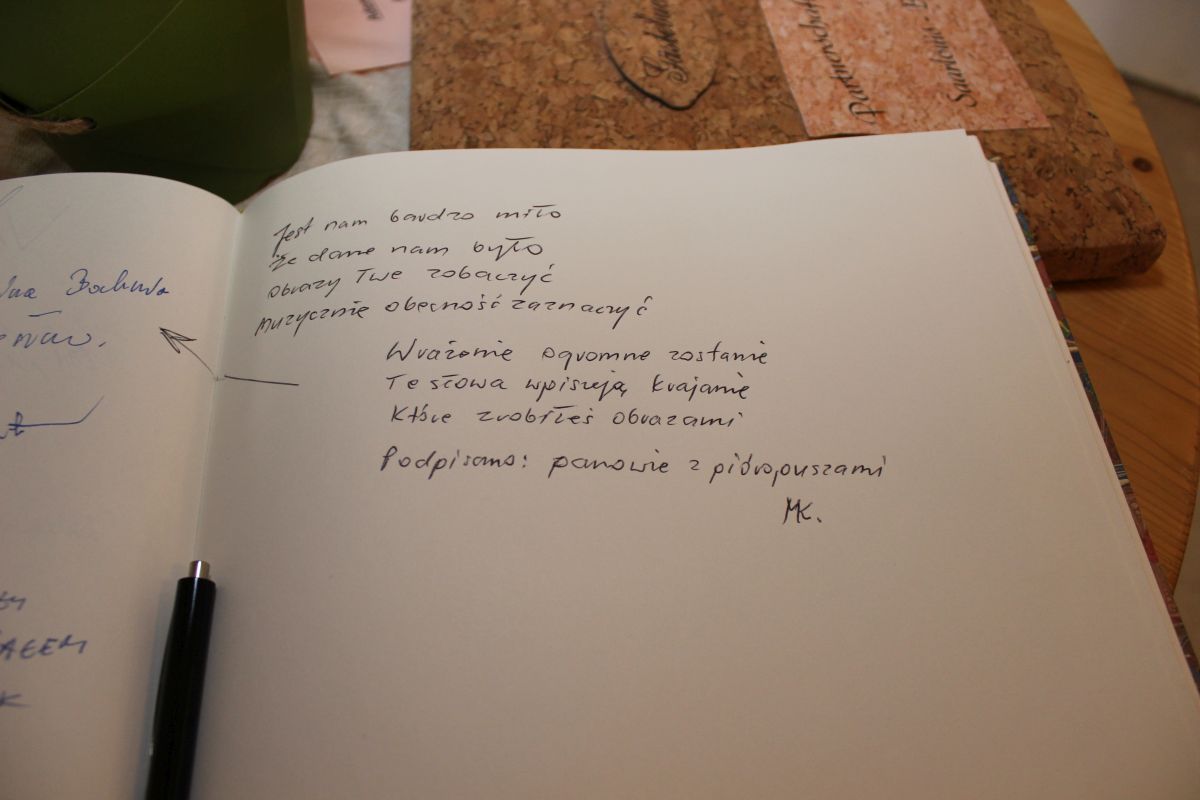 Gästebuch
Partnerschaft
Saarlouis
Jest nam bardzo miło
Że dane nam było
obrazy Twe zobaczyć
muzycznie obecność zaznaczyć
Wrażenie ogromne zostanie
Te słowa wpiszują krajanie
Które zrobiłeś obrazami
Podpisano: panowie z pióropuszami
MK.